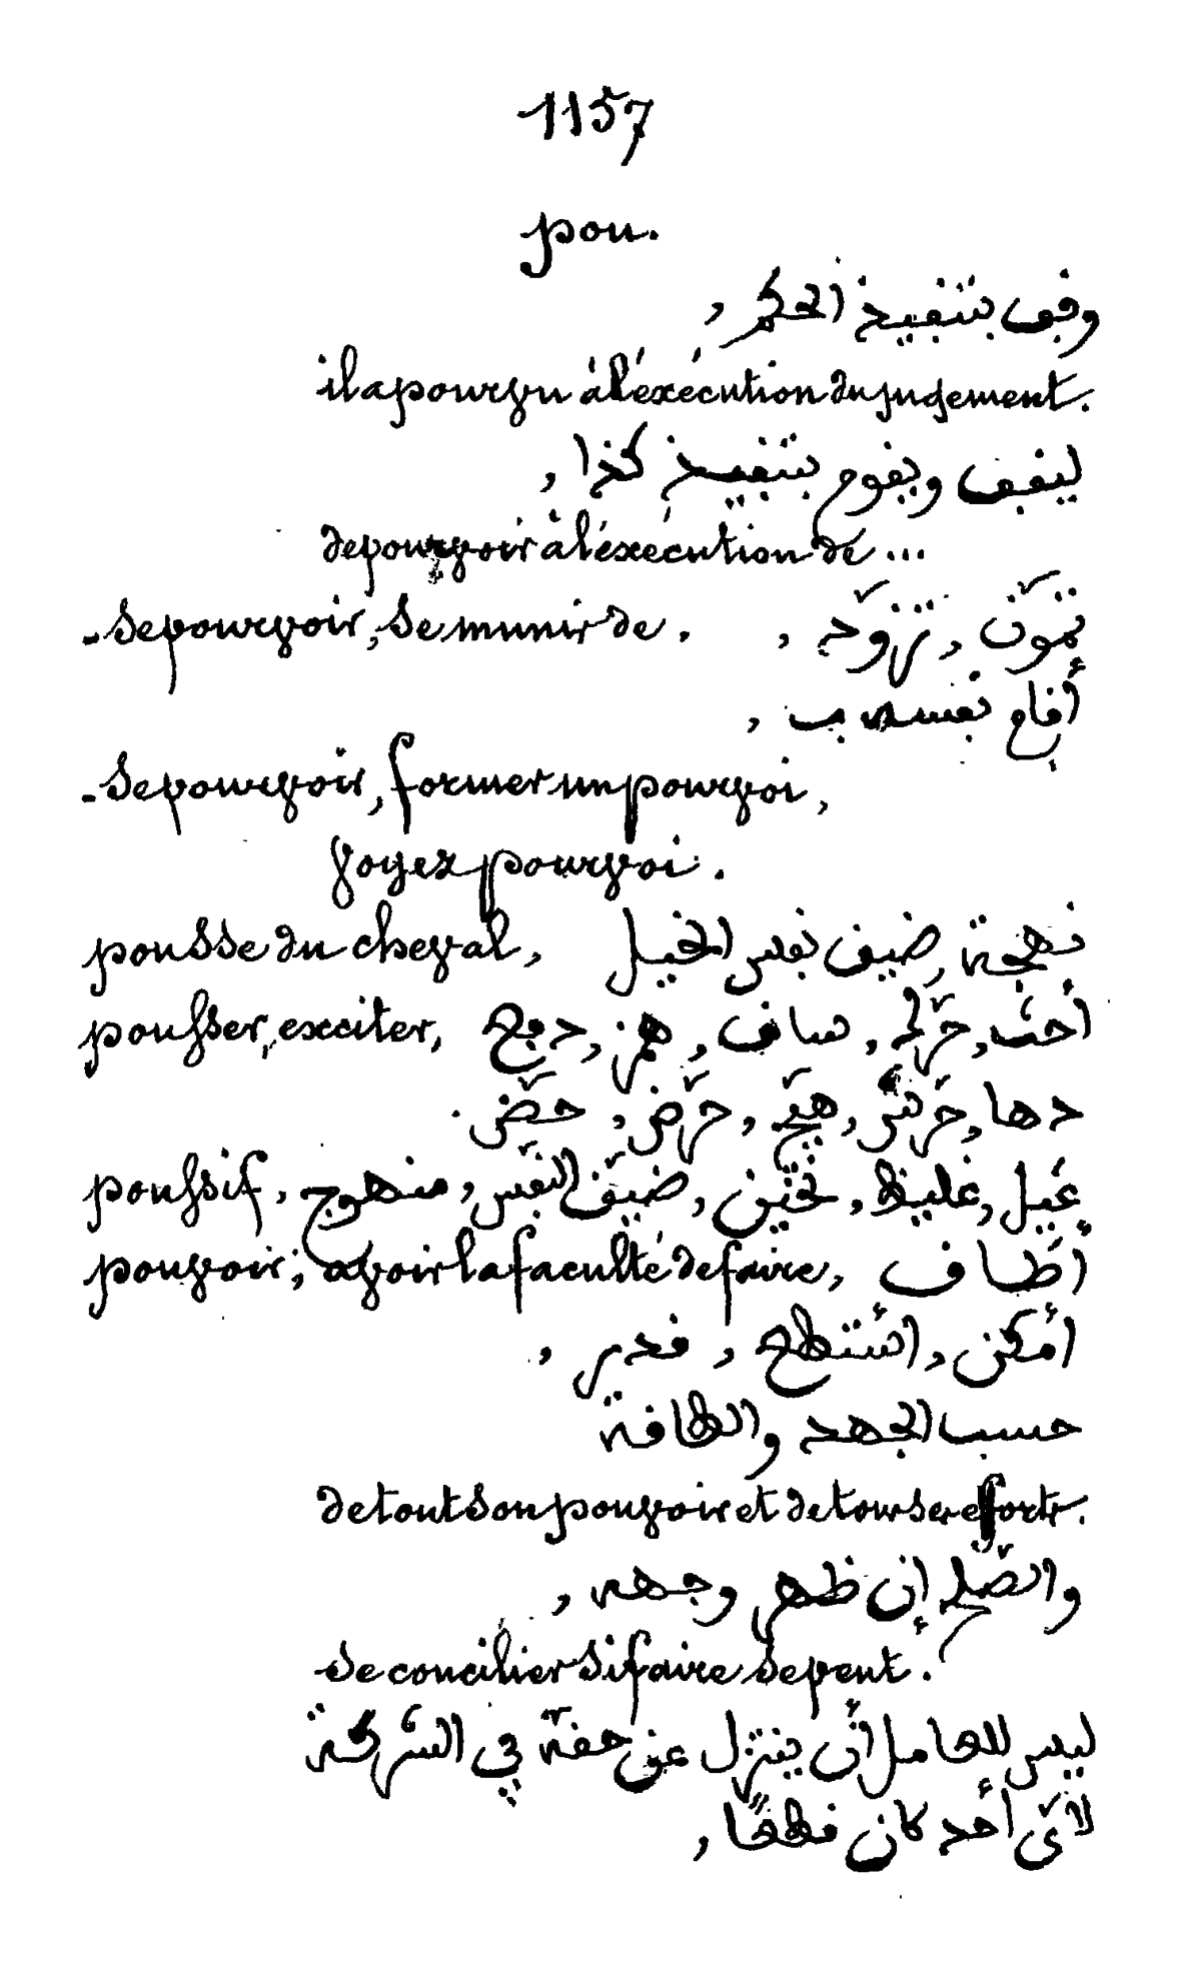 1157
pou.
وقف بتنفيذ الحكم ,
il a pourvu à l'éxécution du jugement.
ليقف ويقوم بتنفيذ كذا ,
de pourvoir à l'éxécution de ...
- se pourvoir, se munir de . تموّن , تزوّد ,
أقام نفسه ب ,
- se pourvoir, former un pourvoi,
voyez pourvoi.
pousse du cheval, نهجة, ضيق نفس الخيل
pousser, exciter, أحث, حرّك, ساق, همز, دفع
دها, حرّش, هيّج, حرّض, حضّض.
poussif, غليظ, ضيّق النفس, منهوج
pouvoir, avoir la faculté de faire, أطاق
أمكن, استطع, قدر ,
حسب الجهد والطاقة
de tout son pouvoir et de tous ses efforts.
والصّلح إن ظهر وجهه ,
se concilier si faire se peut.
ليس للعامل أن ينزل عن حقه في الشركة
لأيّ أحد كان قطعًا ,